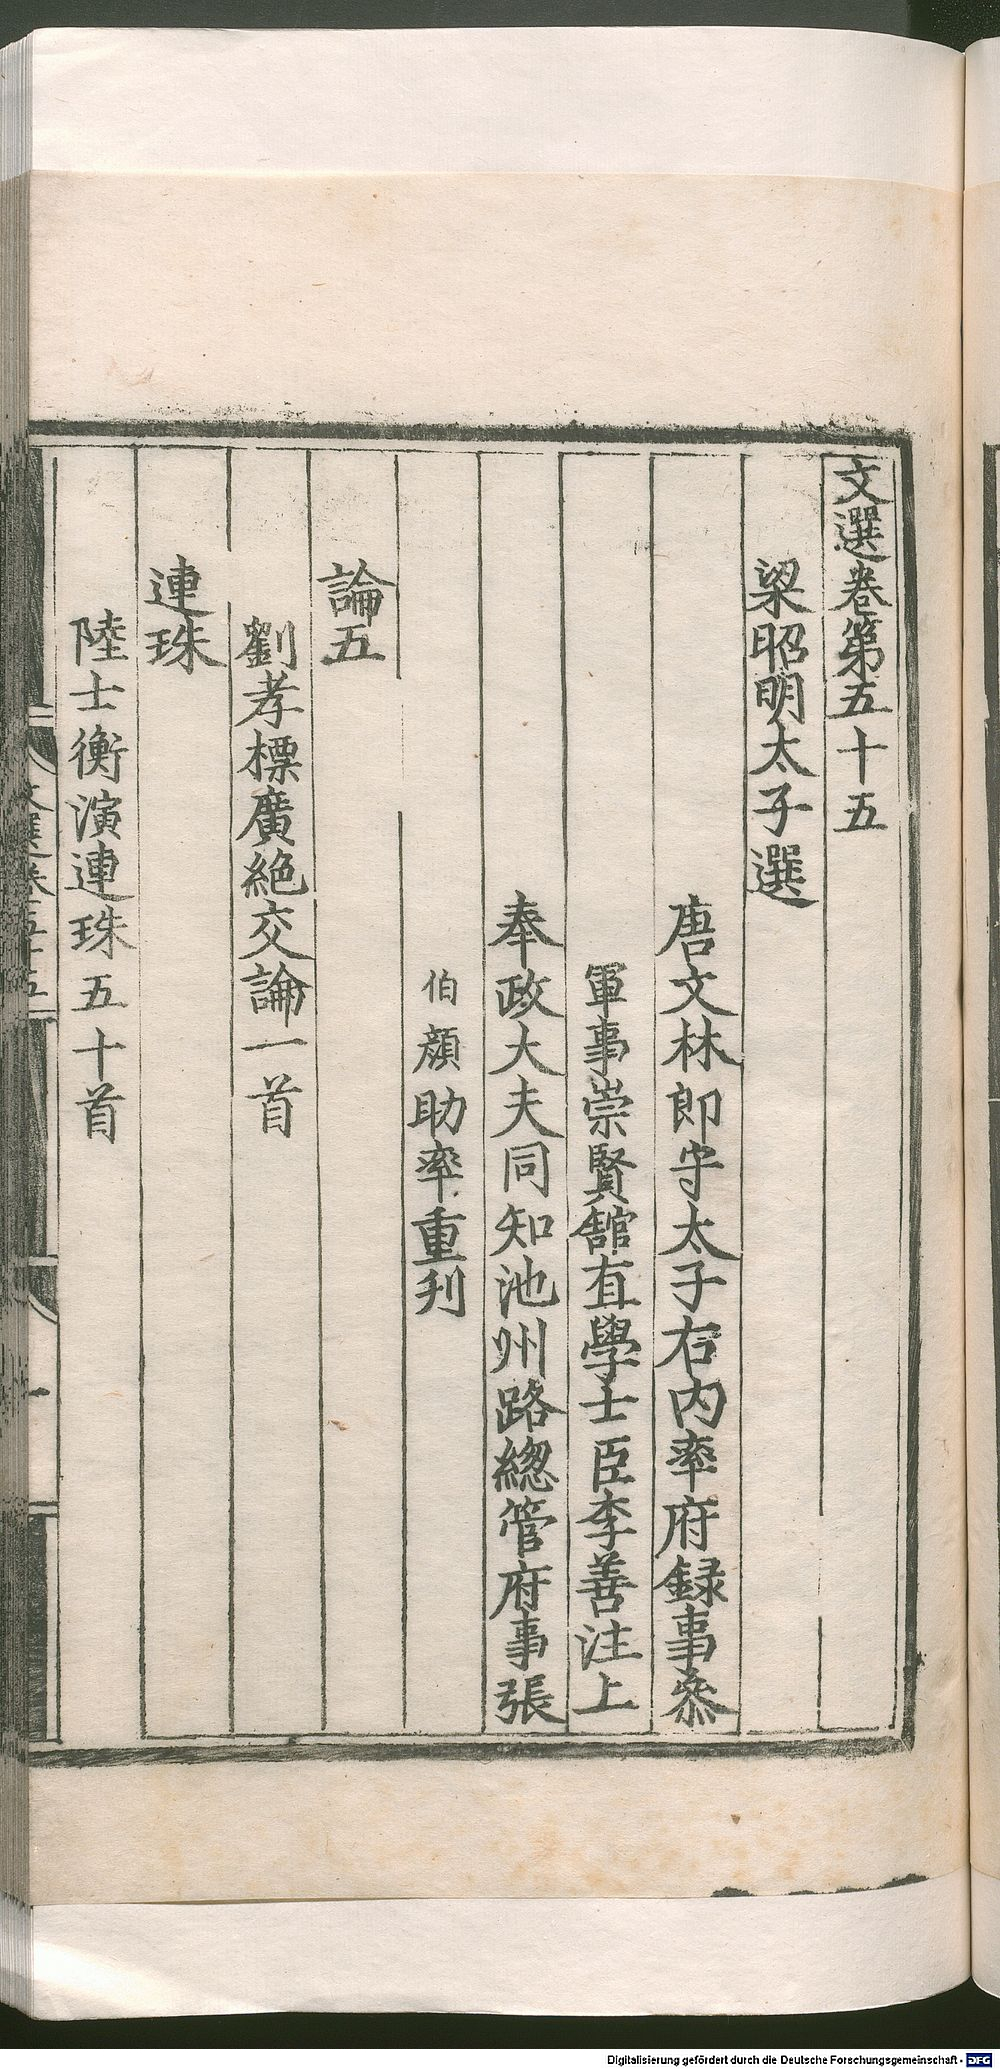 文選卷第五十五
梁昭明太子選
唐文林郎守太子右內率府録事叅
軍事崇賢館直學士臣李善注上
奉政大夫同知池州路緫管府事張
伯顔助率重刋
論五
劉孝標廣絶交論一首
連珠
陸士衡演連珠五十首
文選卷五十五
一
Digitalisierung gefördert durch die Deutsche Forschungsgemeinschaft - DFG